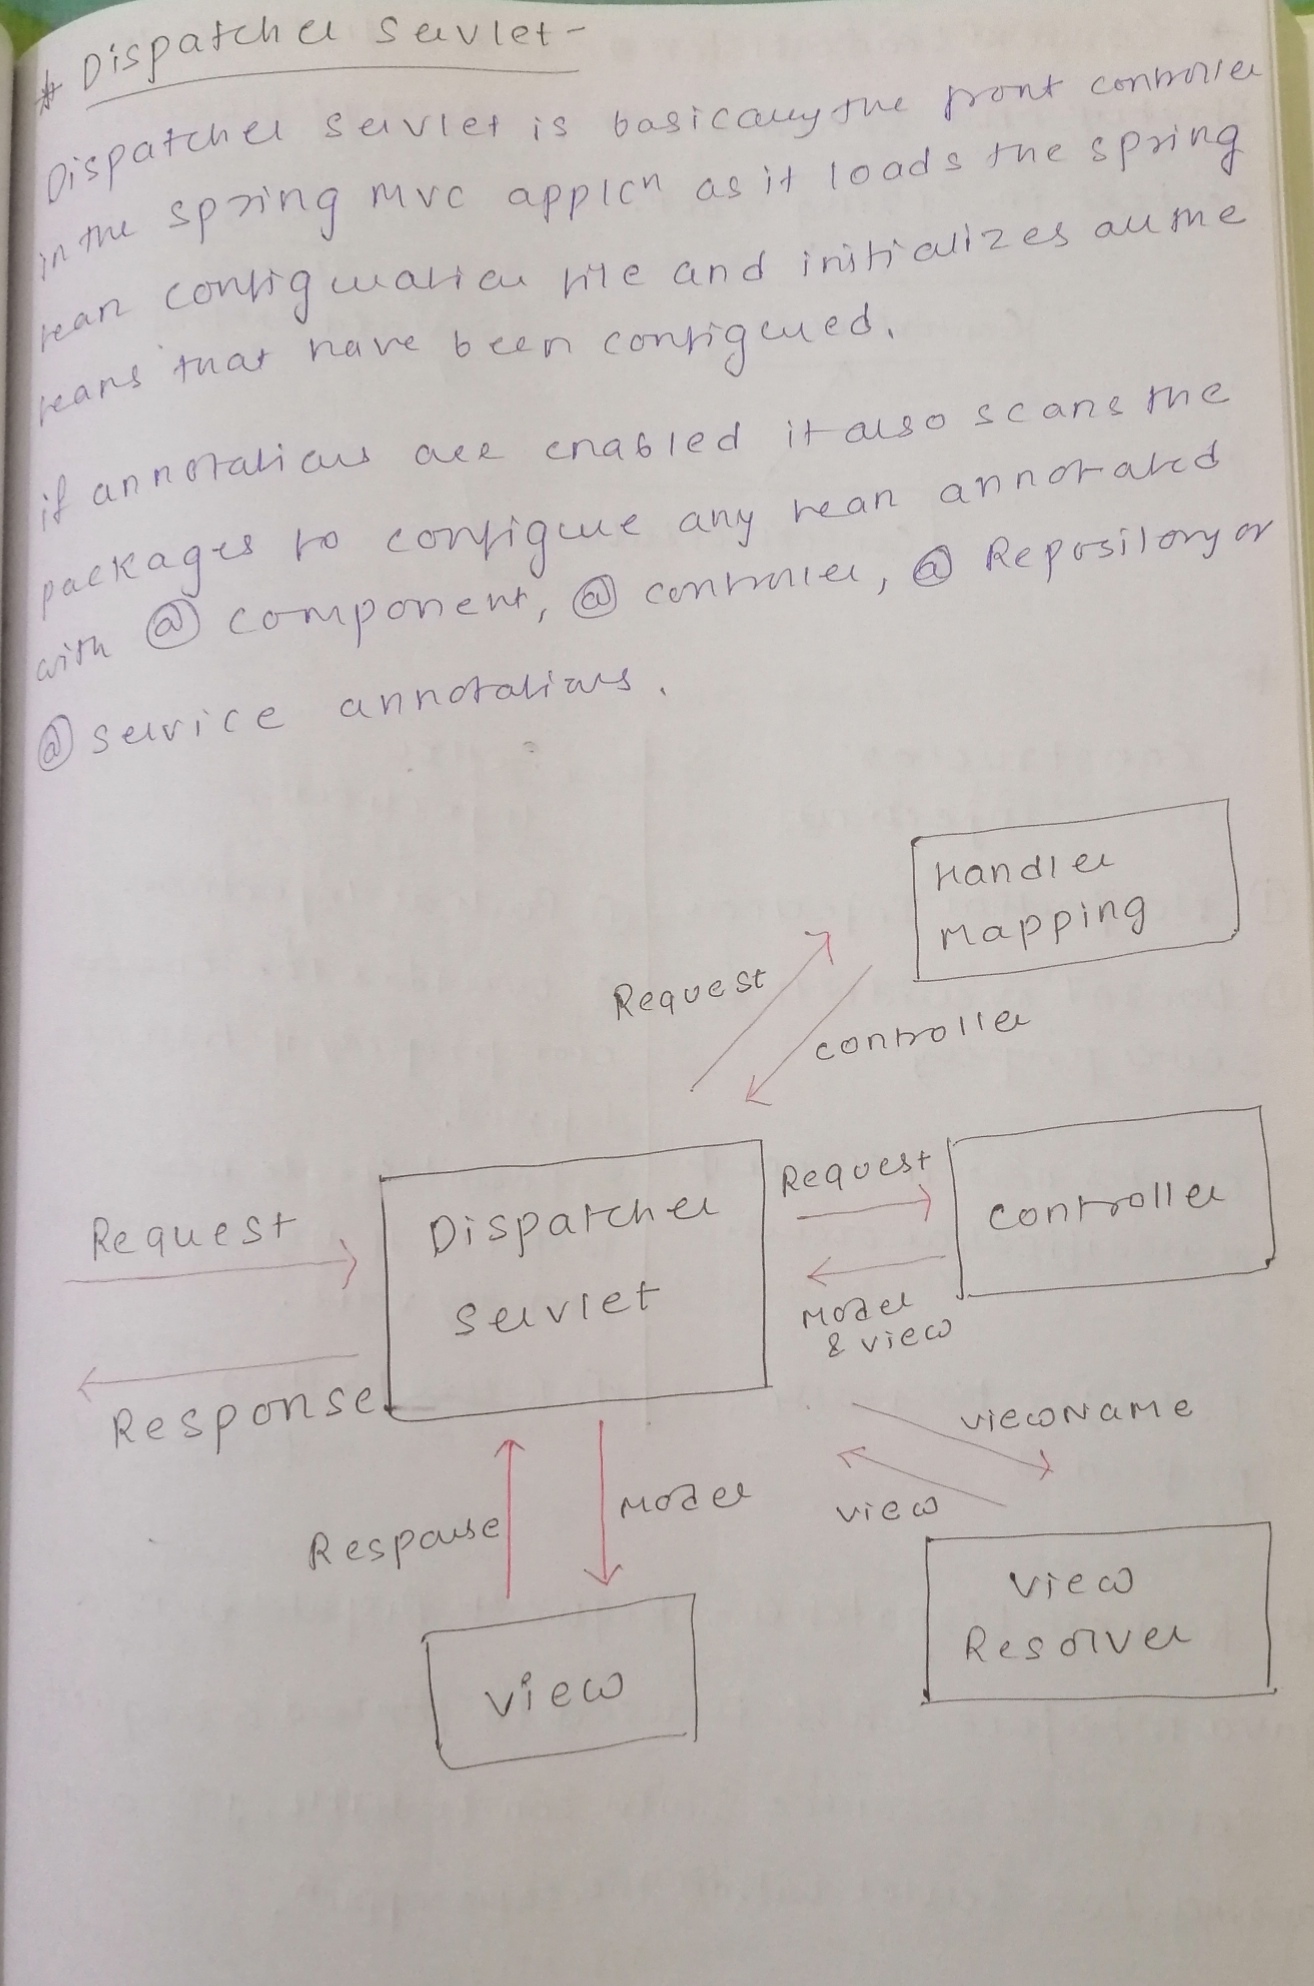 * Dispatcher Servlet -
Dispatcher servlet is basically the front controller
in the spring MVC applcn as it loads the spring
bean configuration file and initializes all the
beans that have been configured.
if annotations are enabled it also scans the
packages to configure any bean annotated
with @ component, @ controller, @ Repository or
@ service annotations.
Handler
Mapping
Request
controller
Request
Dispatcher
Servlet
Request
controller
Model
& view
Response
viewName
view
Response
Model
view
View
Resolver